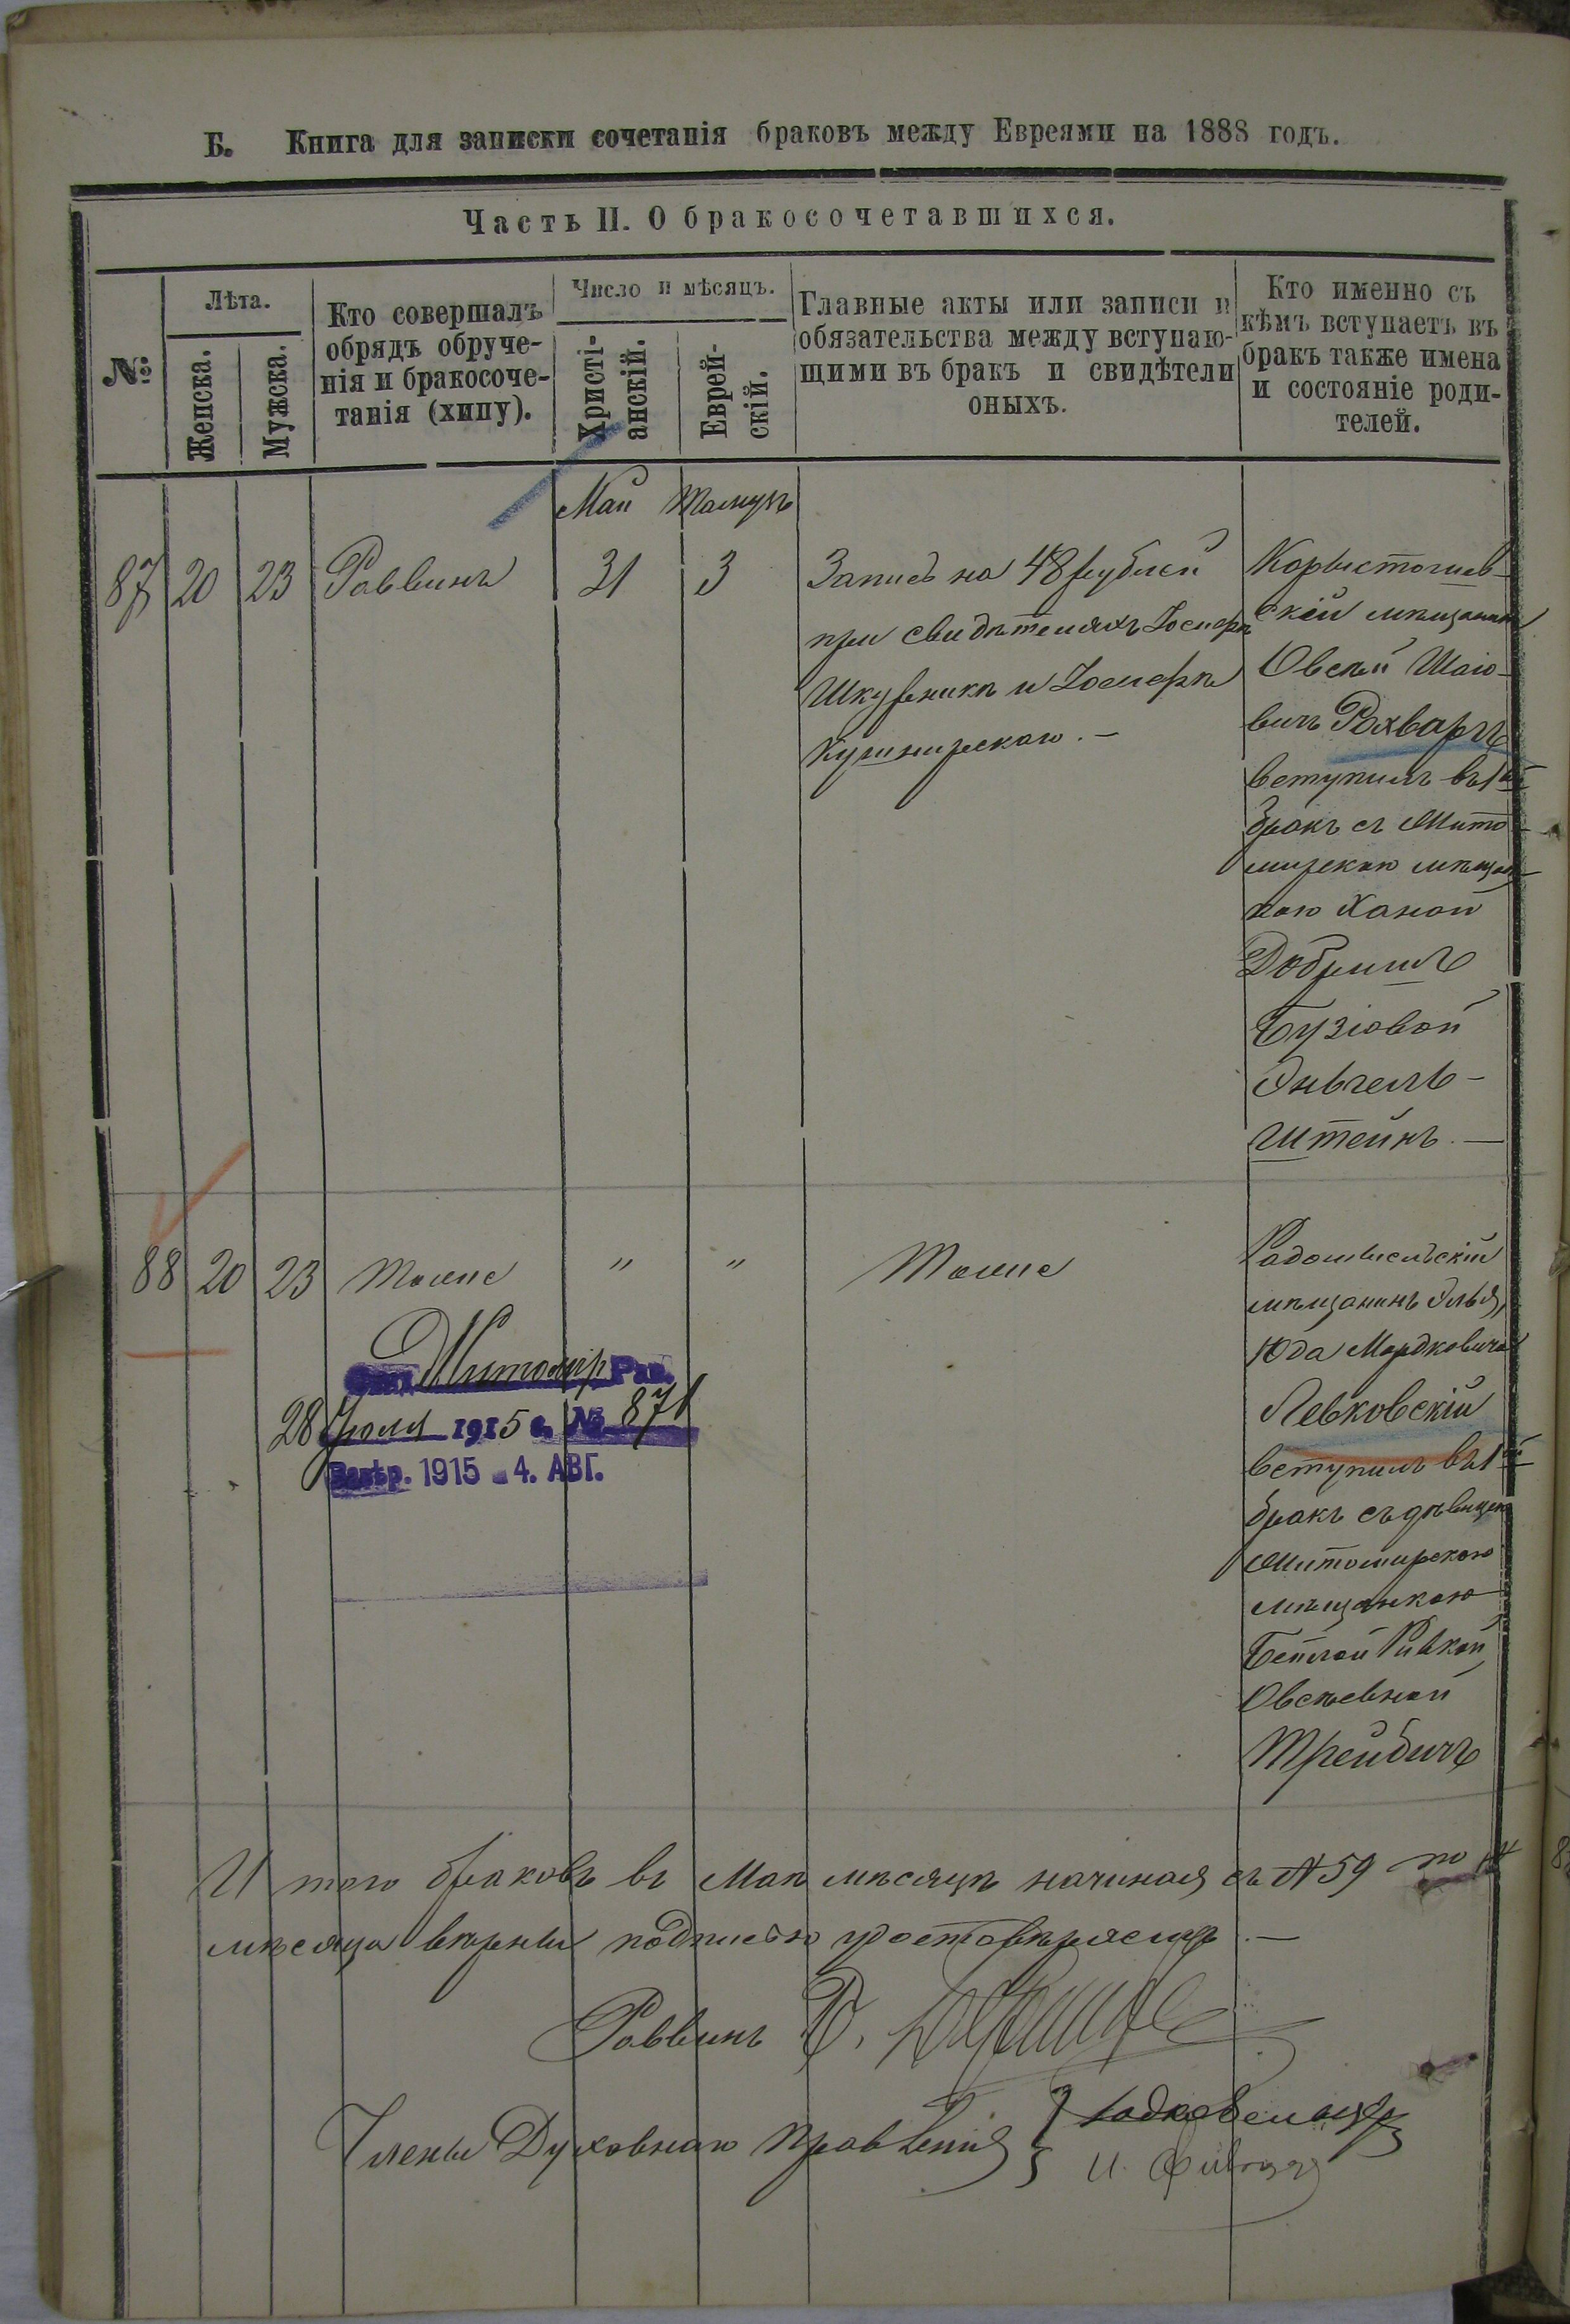 Б. Книга для записки сочетанія браковъ между Евреями на 1888 годъ.
Часть II. О бракосочетавшихся.
№
Лѣта.
Женска.
Мужска.
Кто совершалъ
обрядъ обруче-
нія и бракосоче-
танія (хипу).
Число и мѣсяцъ.
Христі-
анскій.
Еврей-
скій.
Главные акты или записи и
обязательства между вступаю-
щими въ бракъ и свидѣтели
оныхъ.
Кто именно съ
кѣмъ вступаетъ въ
бракъ также имена
и состояніе роди-
телей.
Май Тамузъ
87 20 23 Раввинъ 31 3
Запись на 48 рублей
при свидѣтеляхъ Іосифѣ
Шкурникѣ и Іосифѣ
Кушнирскаго. —
Коростышев-
скій мѣщанинъ
Овсѣй Шаіо-
вичъ Рохваргъ
вступилъ въ 1ый
бракъ съ Жито-
мирскою мѣщан-
кою Ханой
Добришъ
Бузіовой
Эньгель-
Штейнъ. —
88 20 23 Тоже " " Тоже
Радомысльскій
мѣщанинъ Элья
Юда Мордковичъ
Левковскій
вступилъ въ 1ый
бракъ съ дѣвицею
Житомирскою
мѣщанкою
Бейлой Ривкой
Овсѣевной
Трейбичъ
Житомір Рав.
28 Іюля 1915 г. № 871
Завѣр. 1915 - 4. АВГ.
Итого браковъ въ Маѣ мѣсяцѣ начиная съ № 59 по
мѣсяца вѣрны подписью удостовѣряемъ. —
Раввинъ
Члены Духовнаго Правленія